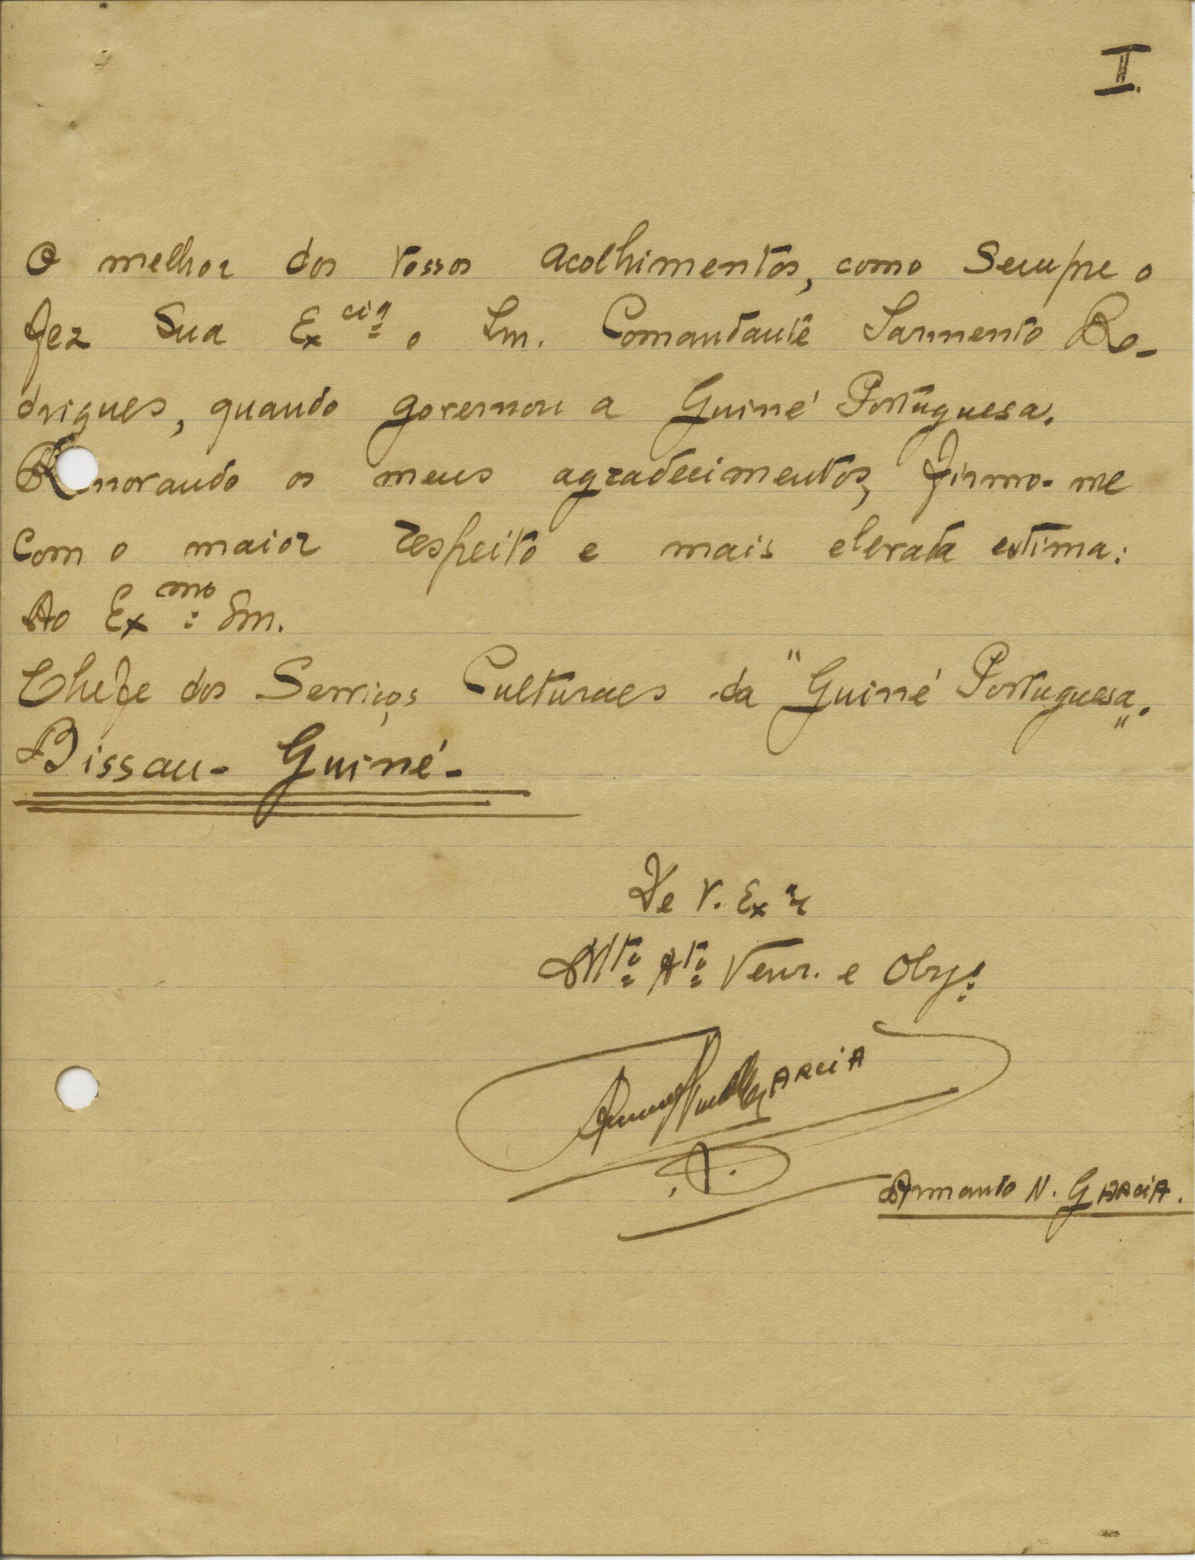 II.
O melhor dos vossos acolhimentos, como sempre o
fez Sua Ex cia o Snr. Comandante Sarmento Ro-
drigues, quando governou a Guiné Portuguesa.
Renovando os meus agradecimentos, firmo-me
com o maior respeito e mais elevada estima:
Ao Ex mo: Snr.
Chefe dos Serviços Culturaes da "Guiné Portuguesa".
Bissau- Guiné-
De V. Exª
Mtº Atº Venr. e Obrgº
GARCIA
Armando N. GARCIA.